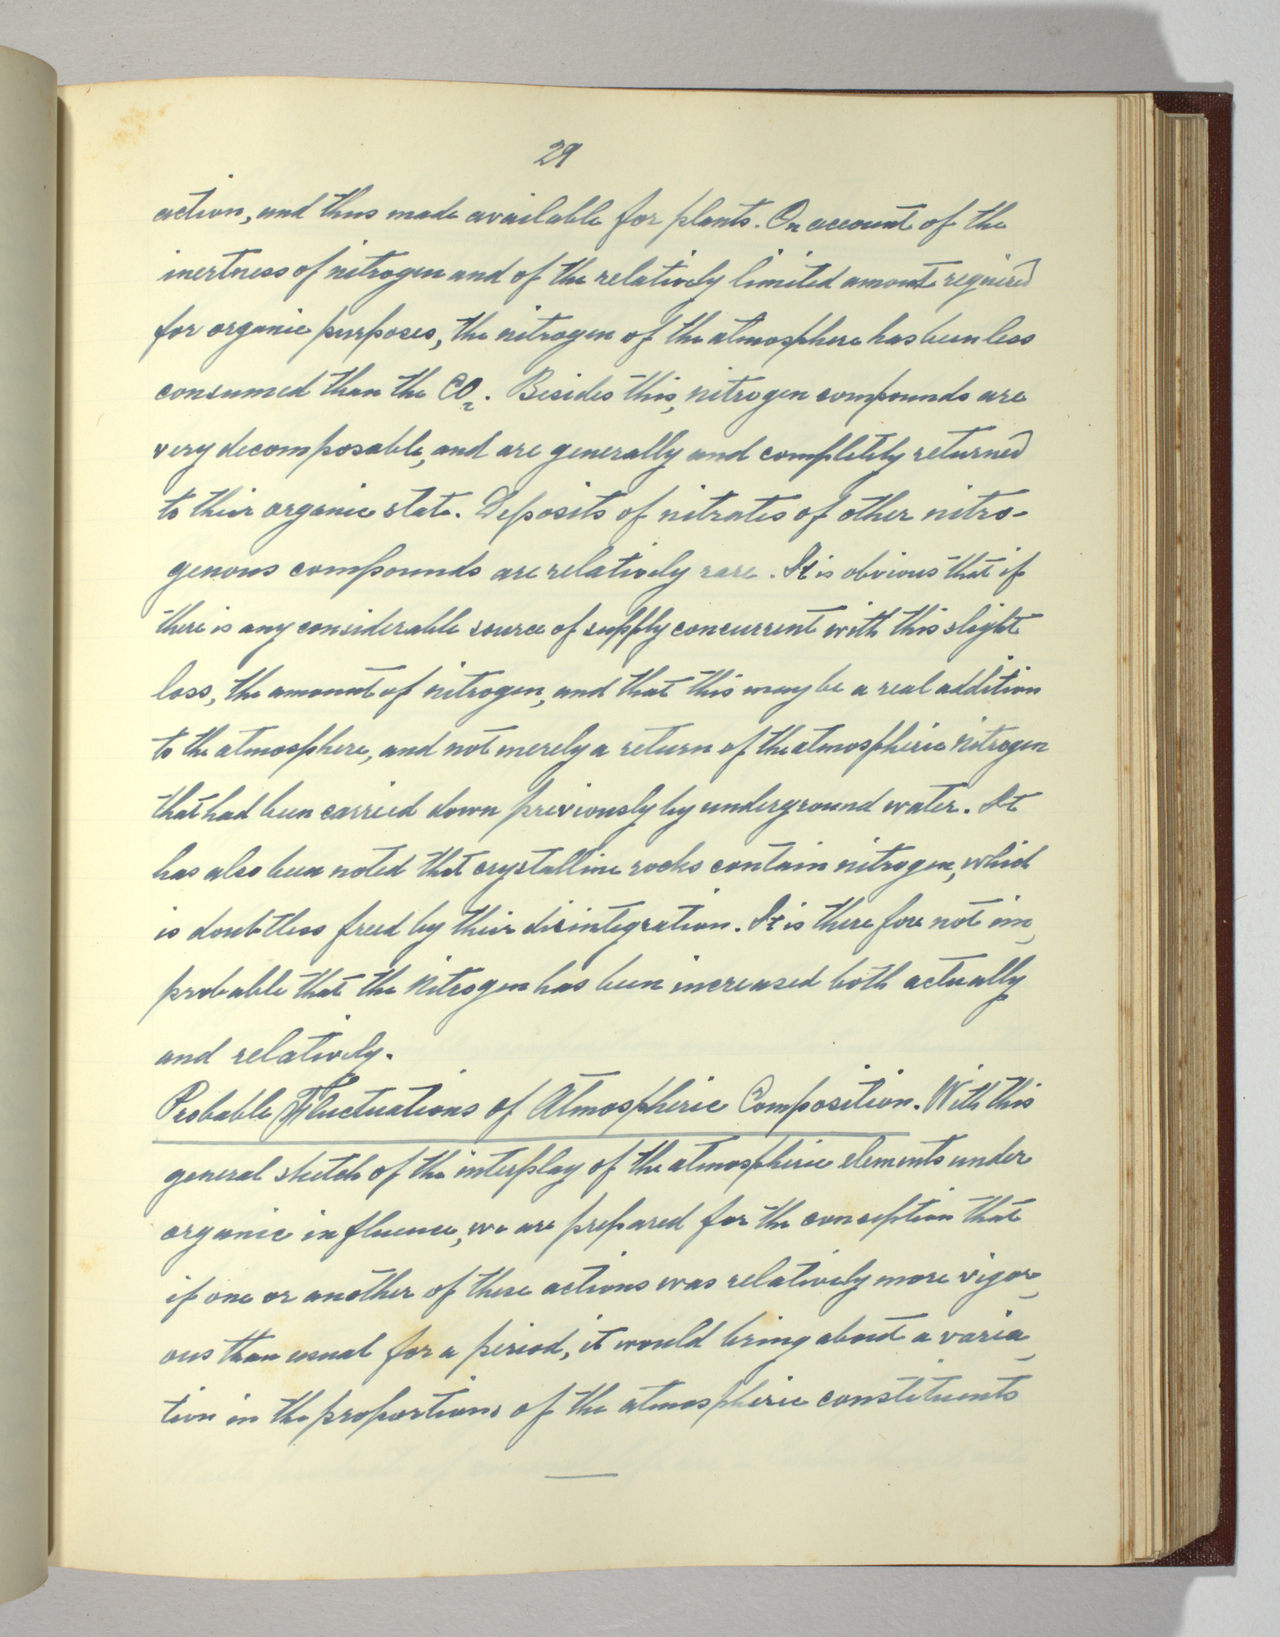 29
action, and thus made available for plants. On account of the
inertness of nitrogen and of the relatively limited amount required
for organic purposes, the nitrogen of the atmosphere has been less
consumed than the CO₂. Besides this, nitrogen compounds are
very decomposable, and are generally and completely returned
to their organic state. Deposits of nitrates of other nitro-
genous compounds are relatively rare. It is obvious that if
there is any considerable source of supply concurrent with this slight
loss, the amount of nitrogen, and that this may be a real addition
to the atmosphere, and not merely a return of the atmospheric nitrogen
that had been carried down previously by underground water. It
has also been noted that crystalline rocks contain nitrogen, which
is doubtless freed by their disintegration. It is therefore not im-
probable that the nitrogen has been increased both actually
and relatively.
Probable Fluctuations of Atmospheric Composition. With this
general sketch of the interplay of the atmospheric elements under
organic influence, we are prepared for the conception that
if one or another of these actions was relatively more vigor-
ous than usual for a period, it would bring about a varia-
tion in the proportions of the atmospheric constituents